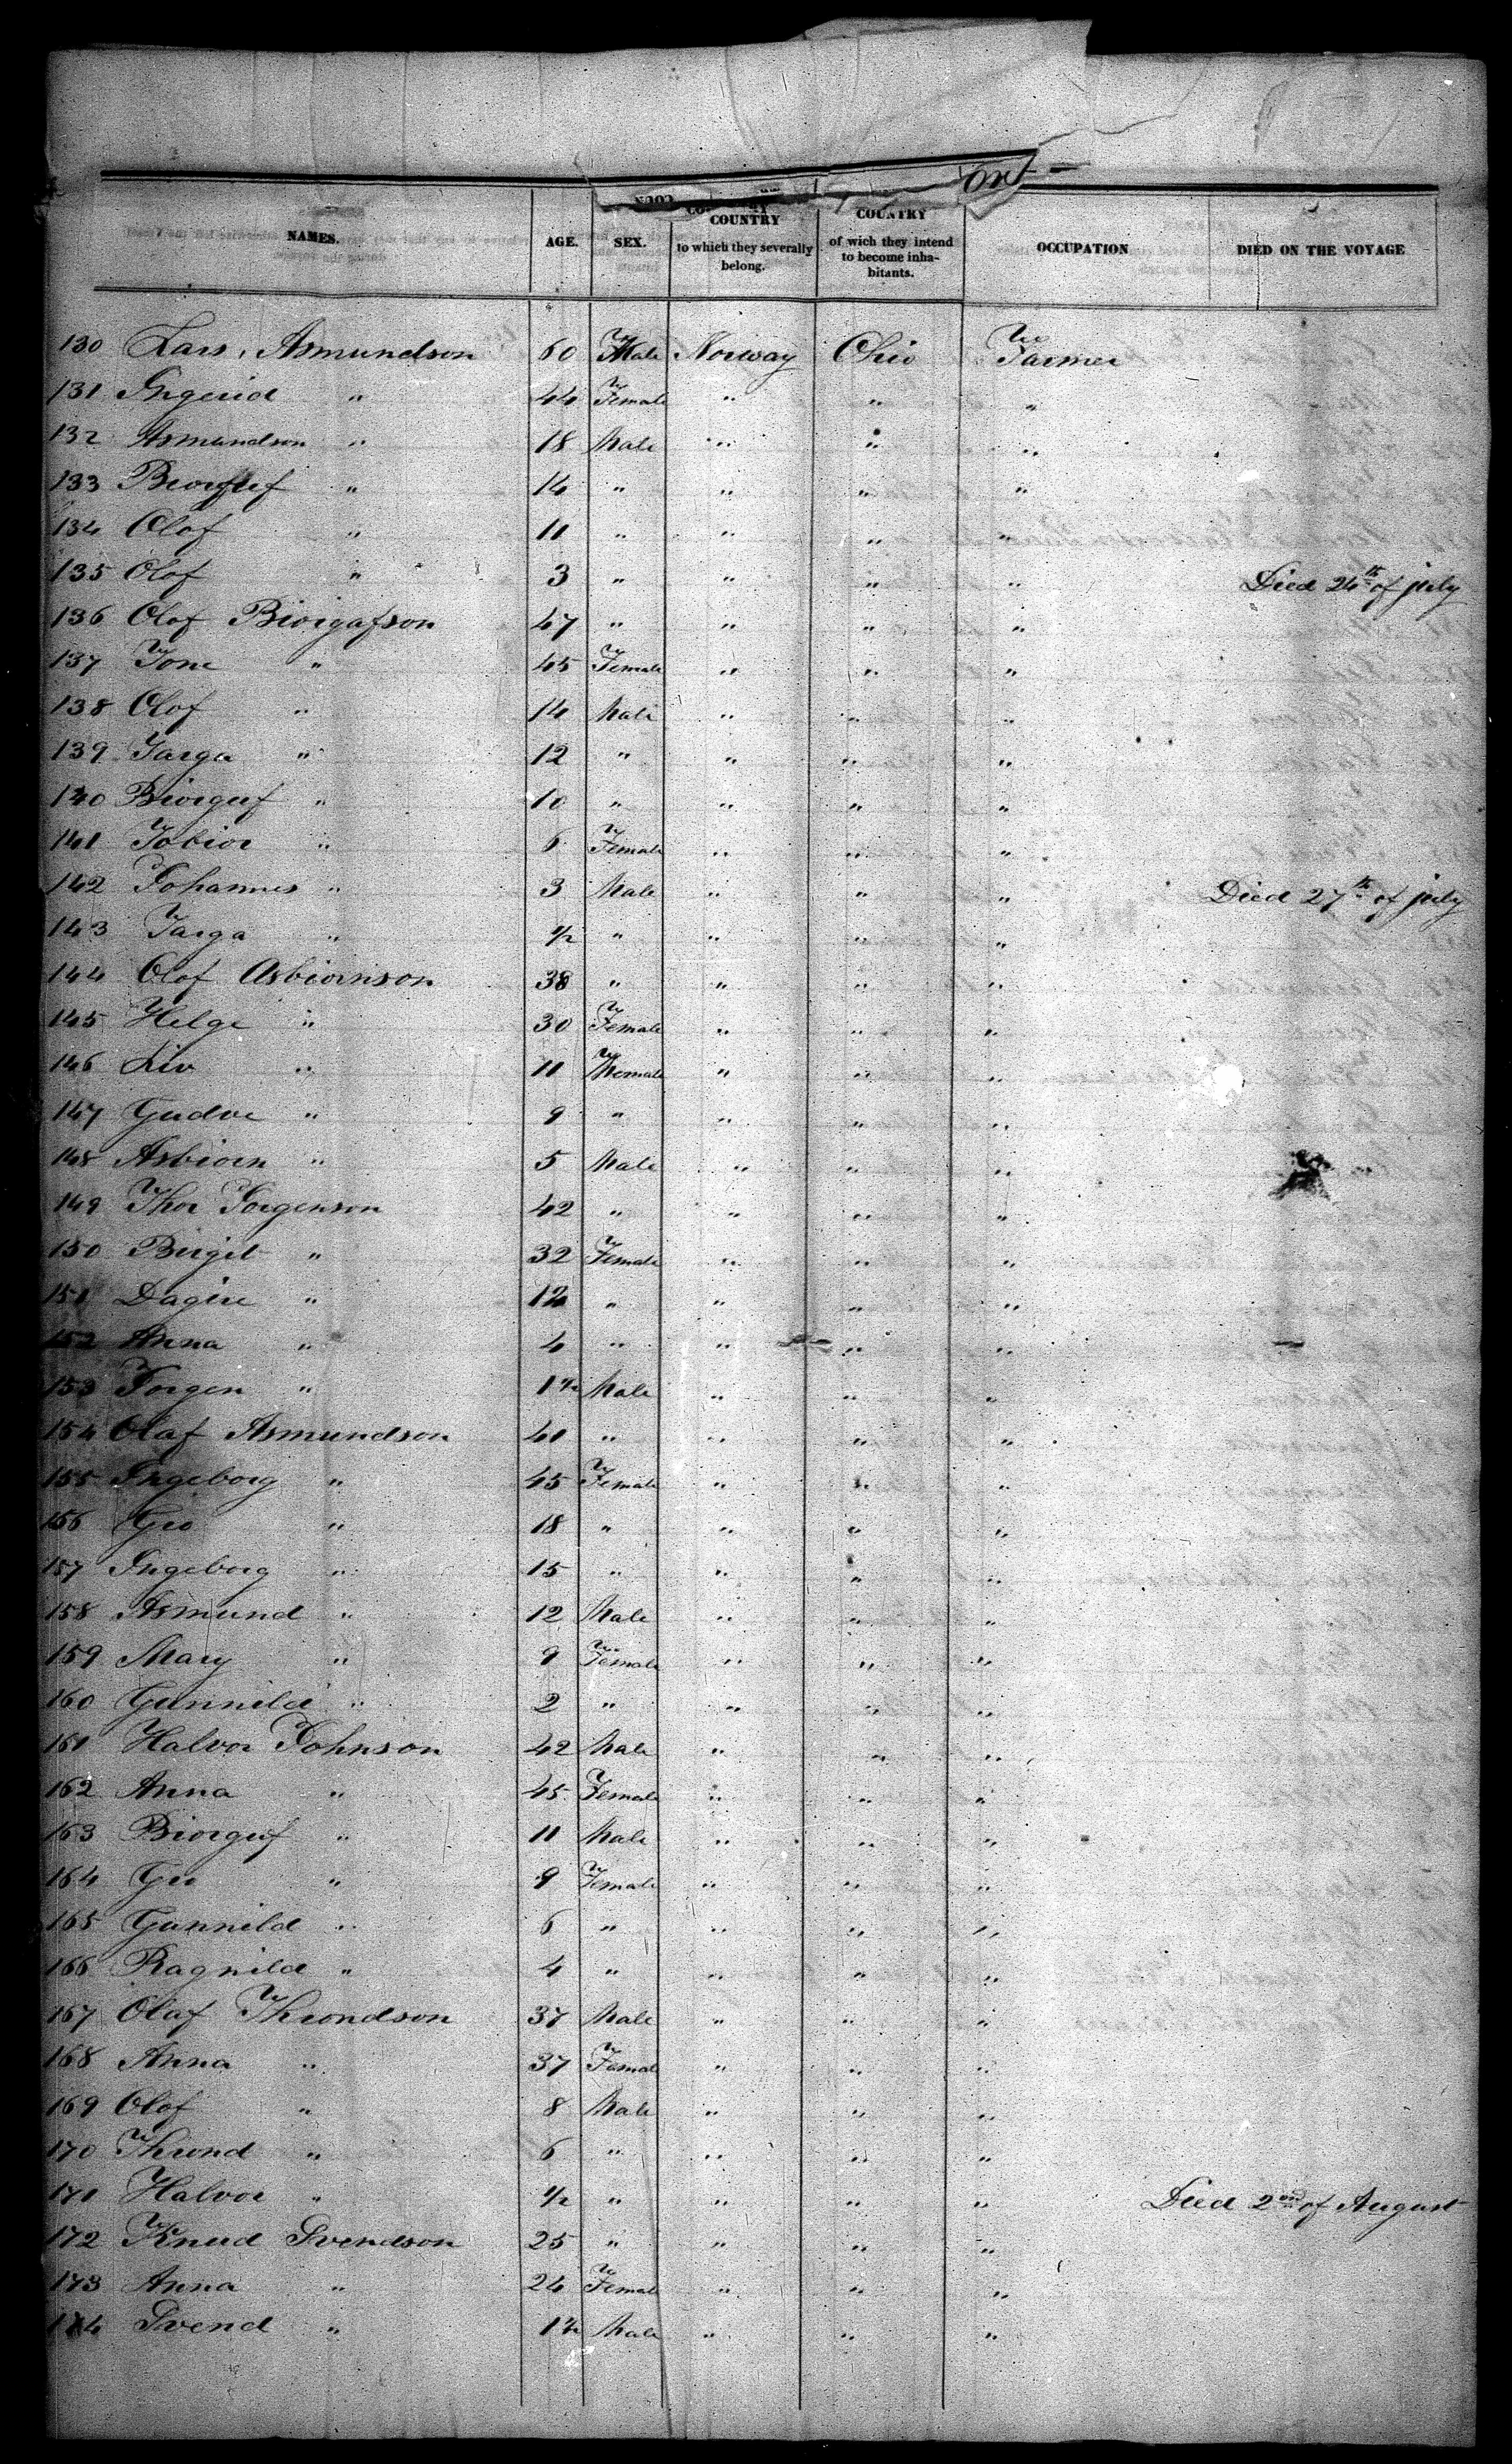 NAMES. AGE. SEX. COUNTRY to which they severally belong. COUNTRY of wich they intend to become inhabitants. OCCUPATION DIED ON THE VOYAGE
130 Lars Asmundson 60 Male Norway Ohio Farmer
131 Ingerid " 44 Female " " "
132 Asmundson " 18 Male " " "
133 " 14 " " " "
134 Olof " 11 " " " "
135 Olof " 3 " " " " Died 24th of july
136 Olof Biorgafson 47 " " " "
137 Tone " 45 Female " " "
138 Olof " 14 Male " " "
139 Targa " 12 " " " "
140 Biorguf " 10 " " " "
141 Tobior " 6 Female " " "
142 Johannes " 3 Male " " " Died 27th of july
143 Targa " 1/2 " " " "
144 Olof Asbiornson 38 " " " "
145 Helge " 30 Female " " "
146 Liv " 11 " " "
147 Gudve " 9 " " " "
148 Asbiorn " 5 Male " " "
149 Thor Jorgenson 42 " " " "
150 Birgit " 32 Female " " "
151 Dagire " " " " "
152 Anna " 4 " " " "
153 Jorgen " 1 1/2 Male " " "
154 Olaf Asmundson 41 " " " "
155 Ingeborg " 45 Female " " "
156 Gro " 18 " " " "
157 Ingeborg " 15 " " " "
158 Asmund " 12 Male " " "
159 Mary " 9 Female " " "
160 Gunnild " 2 " " " "
161 Halvor Johnson 42 Male " " "
162 Anna " 45 Female " " "
163 Biorguf " 11 Male " " "
164 Gro " 9 Female " " "
165 Gunnild " 6 " " " "
166 Ragnild " 4 " " " "
167 Olaf Throndson 37 Male " " "
168 Anna " 37 Female " " "
169 Olof " 8 Male " " "
170 Thrond " 6 " " " "
171 Halvor " 1/2 " " " " Died 2nd of August
172 Knud Svendson 25 " " " "
173 Anna " 24 Female " " "
174 Svend " 1 1/2 Male " " "